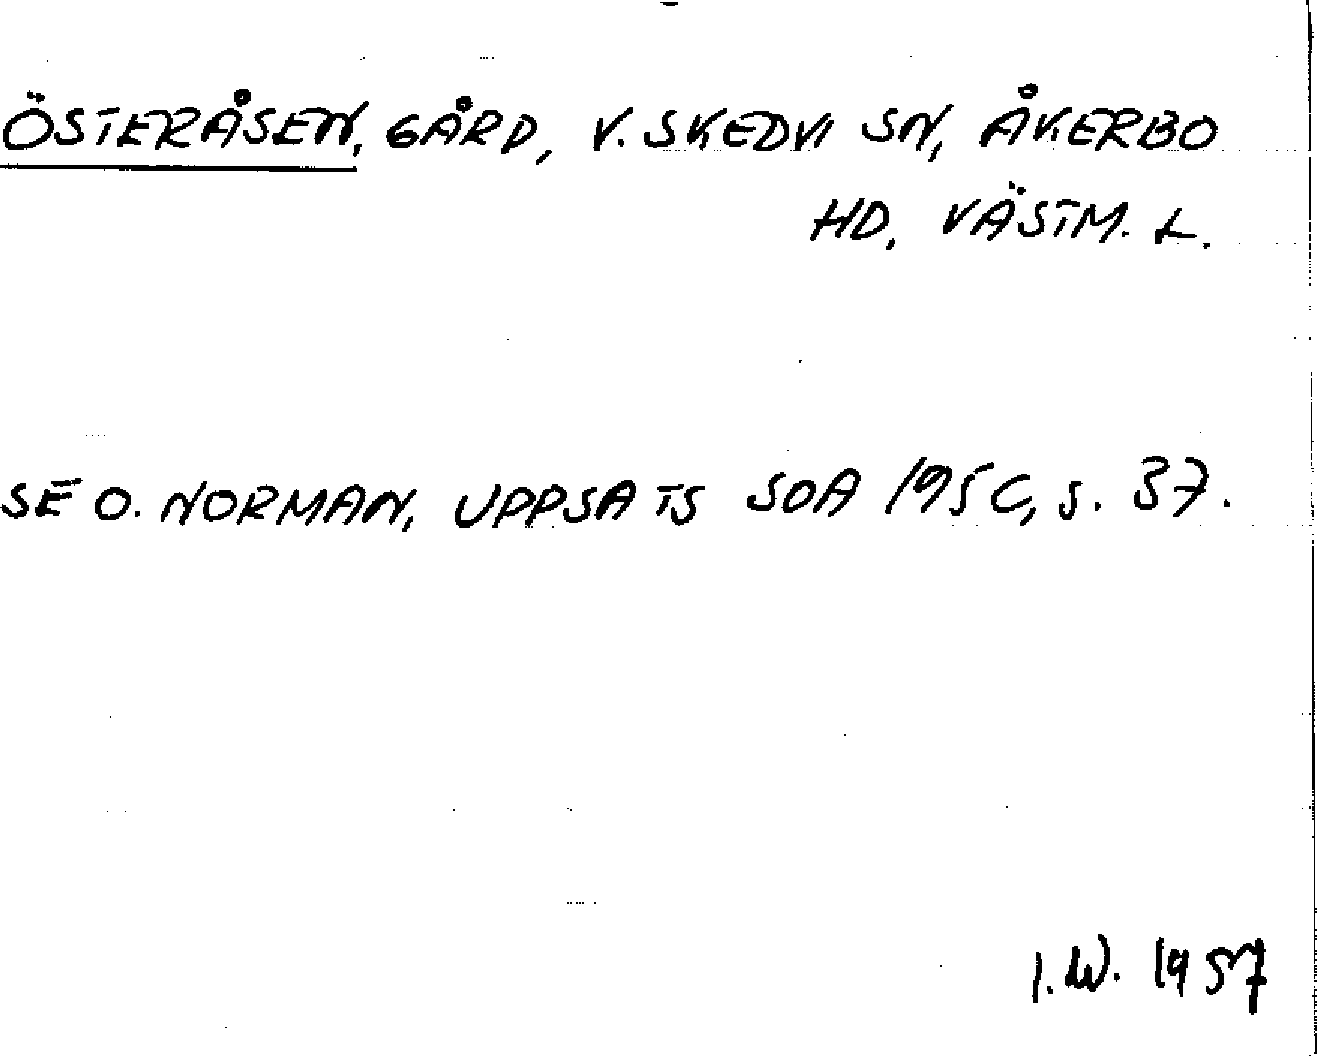 ÖSTERÅSEN, GÅRD, V. SKEDVI SN, ÅKERBO
HD, VÄSTM. L.
SE O. NORMAN, UPPSATS SOA 1956, s. 37.
I.W. 1957